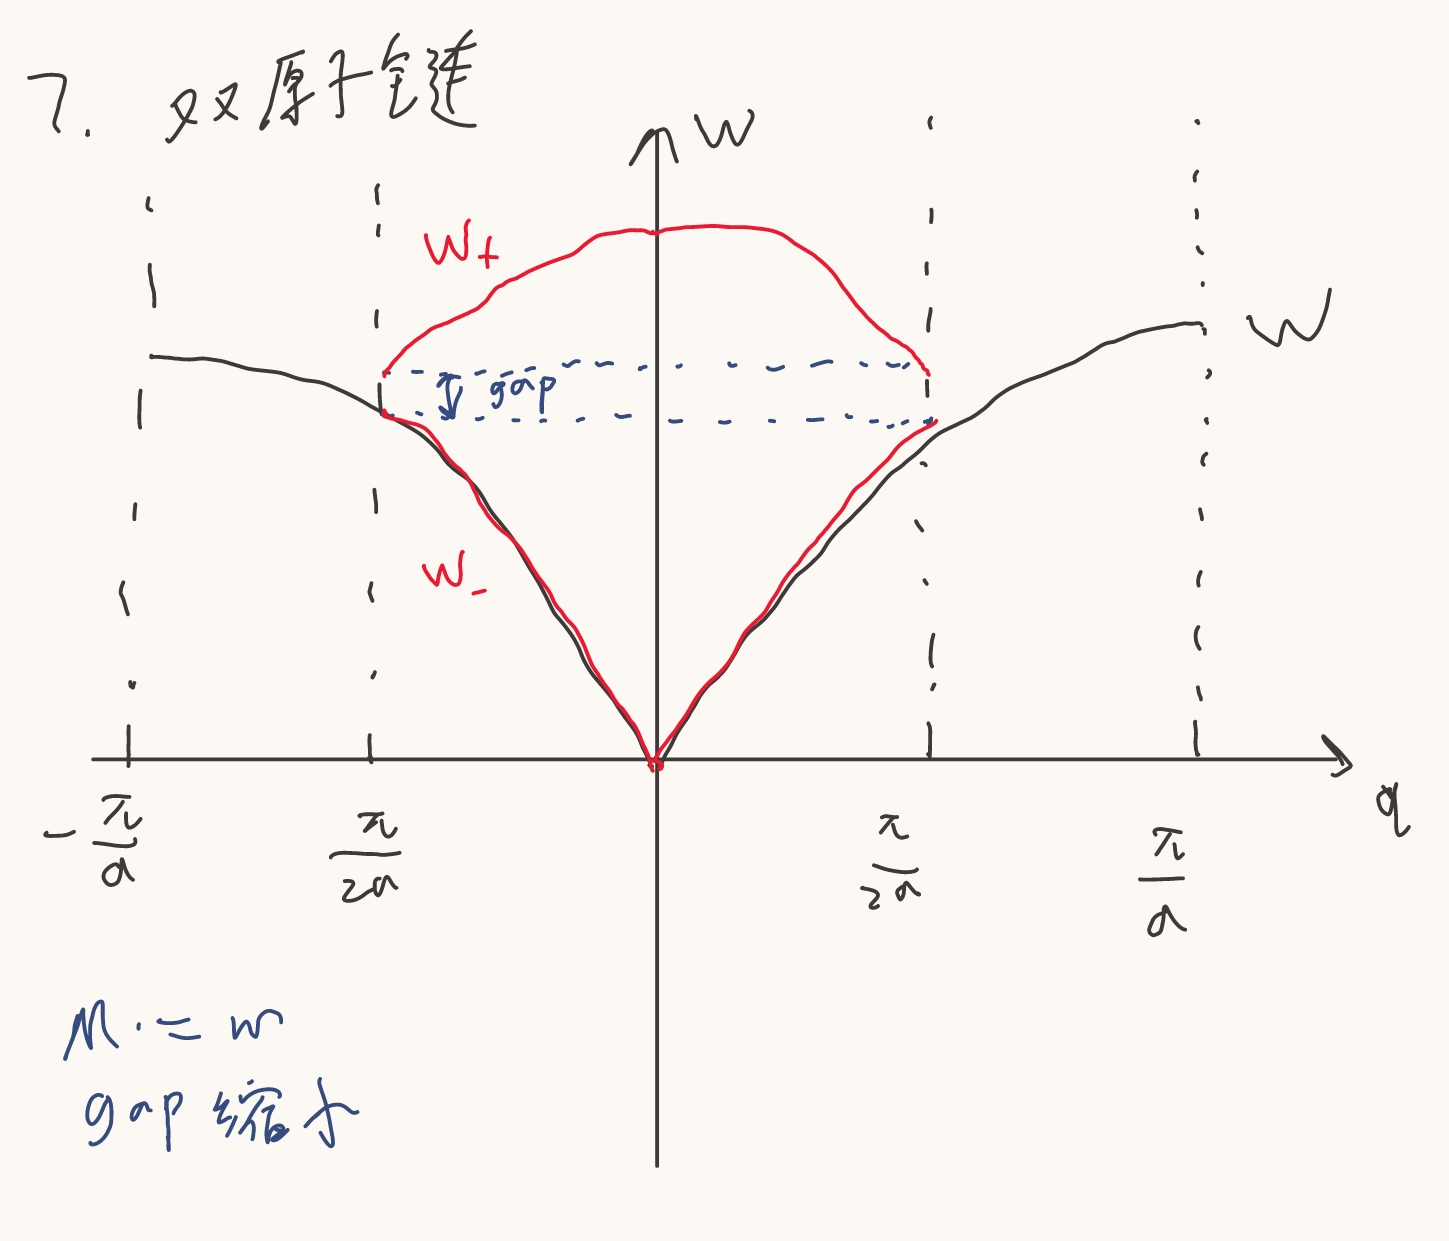 7. 双原子链
W
W+
W
gap
W-
q
-π/a
π/2a
π/2a
π/a
M = m
gap 缩小